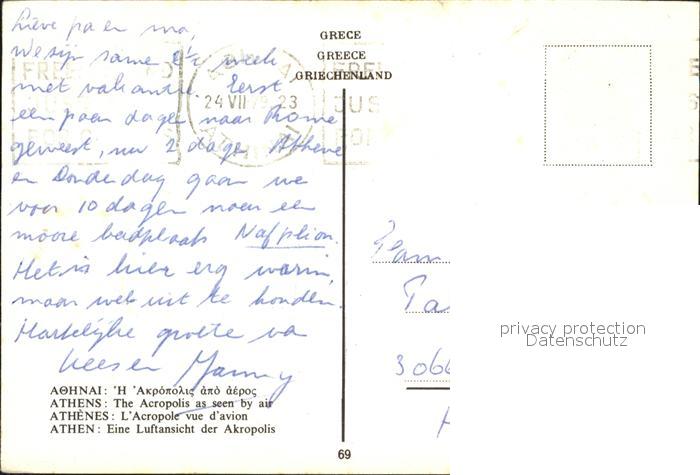 Lieve pa en ma,
We zijn samen een week
met vakantie. Eerst
een paar dagen naar Rome
geweest, nu 2 dagen Athene
en Donderdag gaan we
voor 10 dagen naar een
mooie badplaats Nafplion.
Het is hier erg warm,
maar wel uit te houden.
Hartelijke groete va
Kees en
ΑΘΗΝΑΙ: Ἡ Ἀκρόπολις ἀπὸ ἀέρος
ATHENS: The Acropolis as seen by air
ATHÈNES: L'Acropole vue d'avion
ATHEN: Eine Luftansicht der Akropolis
GRECE
GREECE
GRIECHENLAND
24 VII 79 23
FREE
JUS
Fam
3066
privacy protection
Datenschutz
69